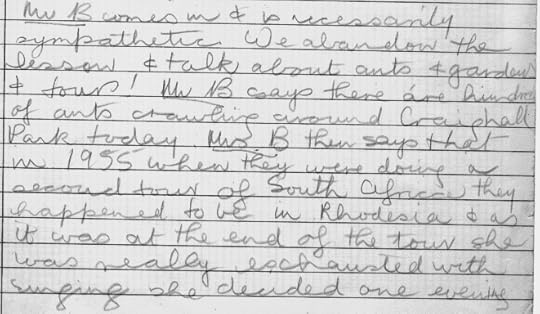 Mr B comes in & is necessarily
sympathetic. We abandon the
lesson & talk about ants & gardens
& tours! Mr B says there are hundreds
of ants crawling around Craighall
Park today. Mrs B then says that
in 1955 when they were doing a
second tour of South Africa they
happened to be in Rhodesia & as
it was at the end of the tour she
was really exhausted with
singing she decided one evening